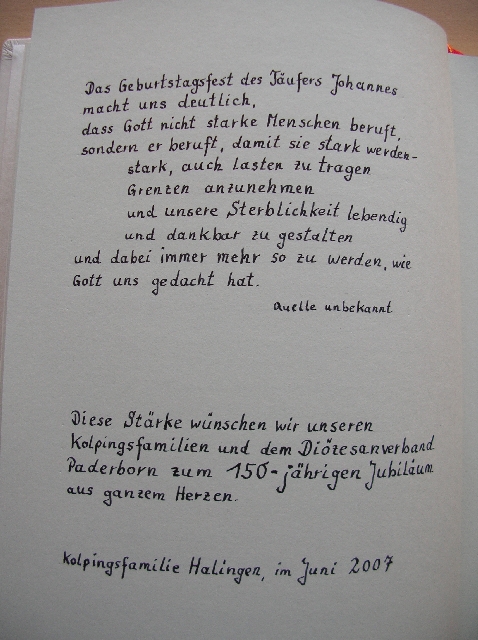 Das Geburtstagsfest des Täufers Johannes
macht uns deutlich,
dass Gott nicht starke Menschen beruft,
sondern er beruft, damit sie stark werden-
stark, auch Lasten zu tragen
Grenzen anzunehmen
und unsere Sterblichkeit lebendig
und dankbar zu gestalten
und dabei immer mehr so zu werden, wie
Gott uns gedacht hat.
Quelle unbekannt
Diese Stärke wünschen wir unseren
Kolpingsfamilien und dem Diözesanverband
Paderborn zum 150-jährigen Jubiläum
aus ganzem Herzen.
Kolpingsfamilie Halingen, im Juni 2007